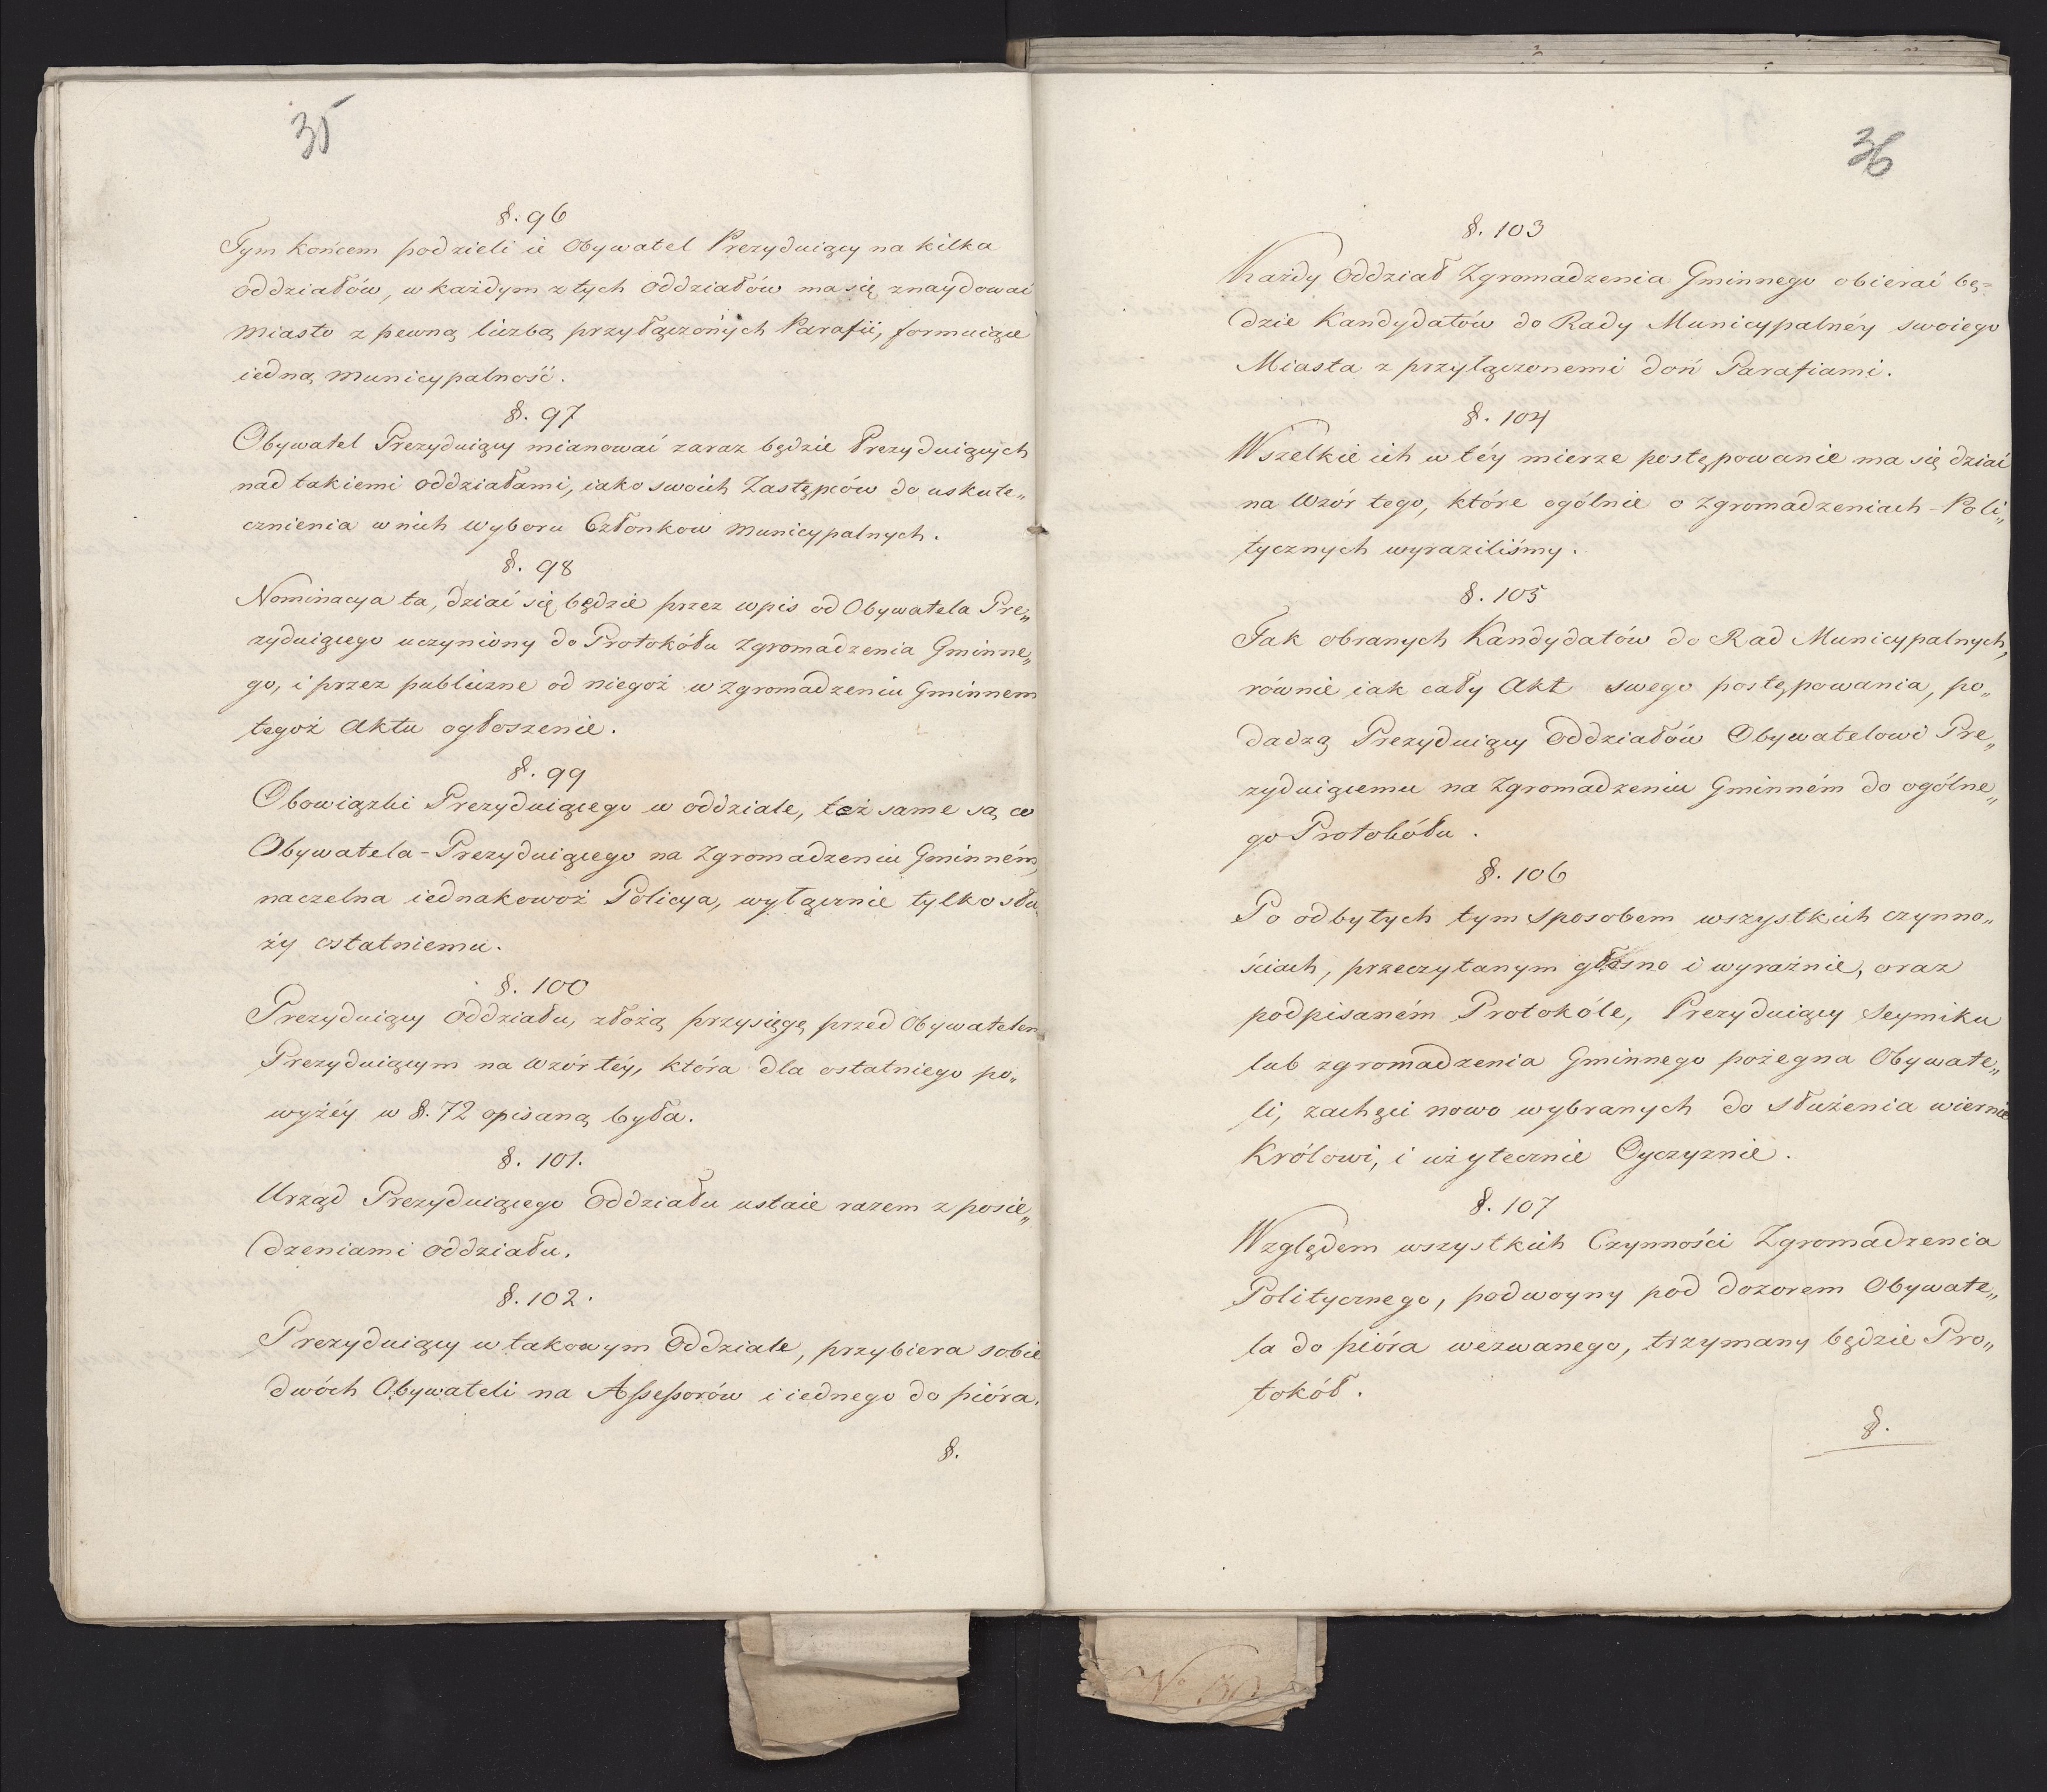 35
§. 96
Tym końcem podzieli ie Obywatel Prezyduiący na kilka
oddziałów, w każdym z tych oddziałów ma się znaydować
miasto z pewną liczbą przyłączonych Parafii, formuiące
iedną municypalność.
§. 97
Obywatel Prezyduiący mianować zaraz będzie Prezyduiących
nad takiemi oddziałami, iako swoich Zastępców do uskute„
cznienia w nich wyboru Członkow municypalnych.
§. 98
Nominacya ta, dziać się będzie przez wpis od Obywatela Pre„
zyduiącego uczyniony do Protokółu Zgromadzenia Gminne„
go, i przez publiczne od niegoż w zgromadzeniu Gminnem
tegoż Aktu ogłoszenie.
§. 99
Obowiązki Prezyduiącego w oddziale, też same są co
Obywatela-Prezyduiącego na Zgromadzeniu Gminném,
naczelna iednakowoż Policya, wyłącznie tylko słu„
ży ostatniemu.
§. 100
Prezyduiący Oddziału, złożą przysięgę przed Obywatelem
Prezyduiącym na wzór téy, która dla ostatniego po„
wyżéy w §. 72 opisaną była.
§. 101.
Urząd Prezyduiącego Oddziału ustaie razem z posie„
dzeniami oddziału.
§. 102.
Prezyduiący w takowym Oddziale, przybiera sobie
dwóch Obywateli na Assessorów i iednego do pióra.
§.
36
§. 103
Każdy Oddział Zgromadzenia Gminnego obierać bę=
dzie Kandydatów do Rady Municypalnéy swoiego
Miasta z przyłączonemi doń Parafiami.
§. 104
Wszelkie ich w téy mierze postępowanie ma się dziać
na wzór tego, które ogólnie o zgromadzeniach-Poli„
tycznych wyraziliśmy.
§. 105
Tak obranych Kandydatów do Rad Municypalnych,
równie iak cały Akt swego postępowania, po„
dadzą Prezyduiący Oddziałów Obywatelowi Pre„
zyduiącemu na Zgromadzeniu Gminném do ogólne„
go Protokółu.
§. 106
Po odbytych tym sposobem wszystkich czynno„
ściach, przeczytanym głośno i wyraźnie, oraz
podpisaném Protokóle, Prezyduiący Seymiku
lub zgromadzenia Gminnego pożegna Obywate„
li, zachęci nowo wybranych do służenia wiernie
Królowi, i użytecznie Oyczyznie.
§. 107
Względem wszystkich Czynności Zgromadzenia
Politycznego, podwoyny pod dozorem Obywate„
la do pióra wezwanego, trzymany będzie Pro„
tokół.
§.